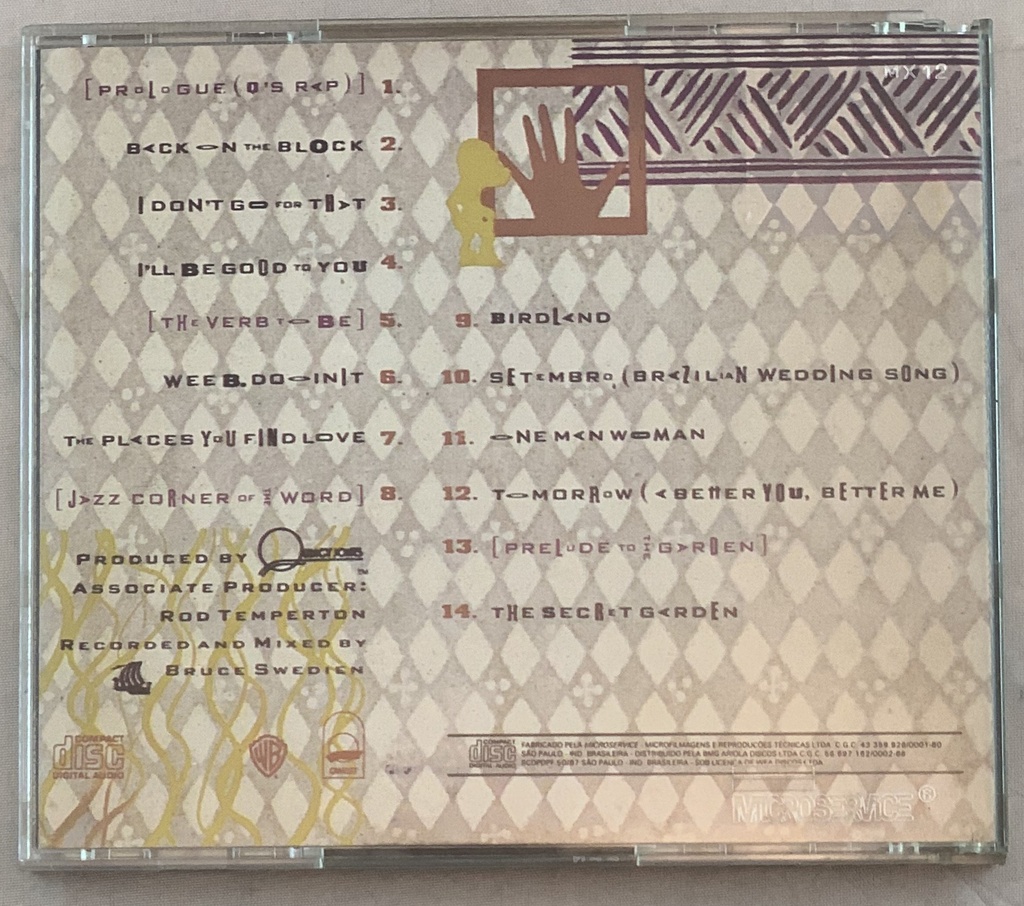 [PROLOGUE (Q'S RAP)] 1.
BACK ON THE BLOCK 2.
I DON'T GO FOR THAT 3.
I'LL BE GOOD TO YOU 4.
[THE VERB TO BE] 5.
WEE B. DOOINIT 6.
THE PLACES YOU FIND LOVE 7.
[JAZZ CORNER OF THE WORD] 8.
PRODUCED BY QUINCY JONES ™
ASSOCIATE PRODUCER:
ROD TEMPERTON
RECORDED AND MIXED BY
BRUCE SWEDIEN
COMPACT
disc
DIGITAL AUDIO
WB
QWEST
MX 12
9. BIRDLAND
10. SETEMBRO (BRAZILIAN WEDDING SONG)
11. ONE MAN WOMAN
12. TOMORROW (A BETTER YOU, BETTER ME)
13. [PRELUDE TO THE GARDEN]
14. THE SECRET GARDEN
COMPACT
disc
DIGITAL AUDIO
FABRICADO PELA MICROSERVICE - MICROFILMAGENS E REPRODUÇÕES TÉCNICAS LTDA C.G.C. 43 359 926/0001-60
SÃO PAULO - IND. BRASILEIRA - DISTRIBUÍDO PELA BMG ARIOLA DISCOS LTDA C.G.C. 56 697 162/0002-66
SÃO PAULO - IND. BRASILEIRA - SOB LICENÇA DE WEA DISCOS LTDA
MICROSERVICE®